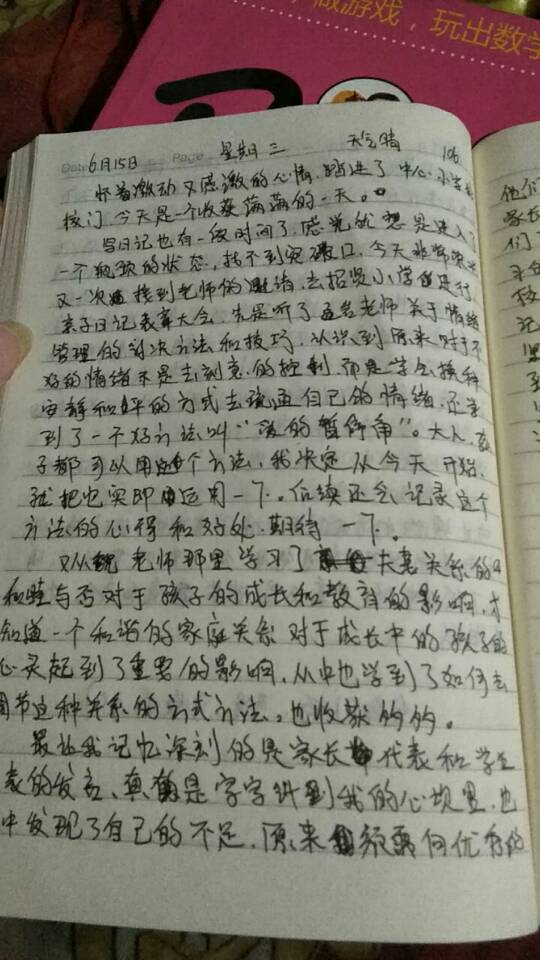 做游戏，玩出数学
Date 6月15日 Page 星期三 天气晴 106
怀着激动又感激的心情，踏进了中心小学
校门，今天是一个收获满满的一天。
写日记也有一段时间了，感觉就想是进入了
一个瓶颈的状态，找不到突破口，今天非常
又一次接到老师的邀请，去招贤小学进行
亲子日记表彰大会，先是听了孟老师关于情绪
管理的解决方法和技巧，认识到原来对于不
好的情绪不是去刻意的控制，而是学会换种
安静和平的方式去疏通自己的情绪，还学
到了一个好方法叫“爱的暂停角”。大人，孩
子都可以用这个方法，我决定从今天开始，
就把它实即运用一下。后续还会记录这个
方法的心得和好处，期待一下。
又从魏老师那里学习了夫妻关系的
和睦与否对于孩子的成长和教育的影响，才
知道一个和谐的家庭关系对于成长中的孩子的
心灵起到了重要的影响，从中也学到了如何去
调节这种关系的方式方法。也收获的的。
最让我记忆深刻的是家长代表和学生
表的发言、真是字字讲到我的心坎里，也
中发现了自己的不足，原来须要向优秀的
他们
家长
们